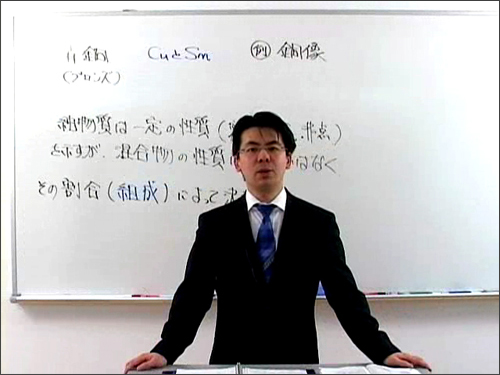 青銅 CuとSn ㋑ 銅像
(ブロンズ)
純物質は一定の性質( 沸点)
を示すが、混合物の性質は
その割合(組成)によって決